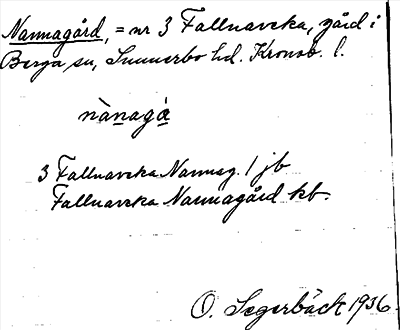 Nannagård, = nr 3 Fallnaveka, gård i
Berga sn, Sunnerbo hd. Kronob. l.
nànagà
3 Fallnaveka Nannag. / jb
Fallnaveka Nannagård kb.
O. Segerbäck 1936.